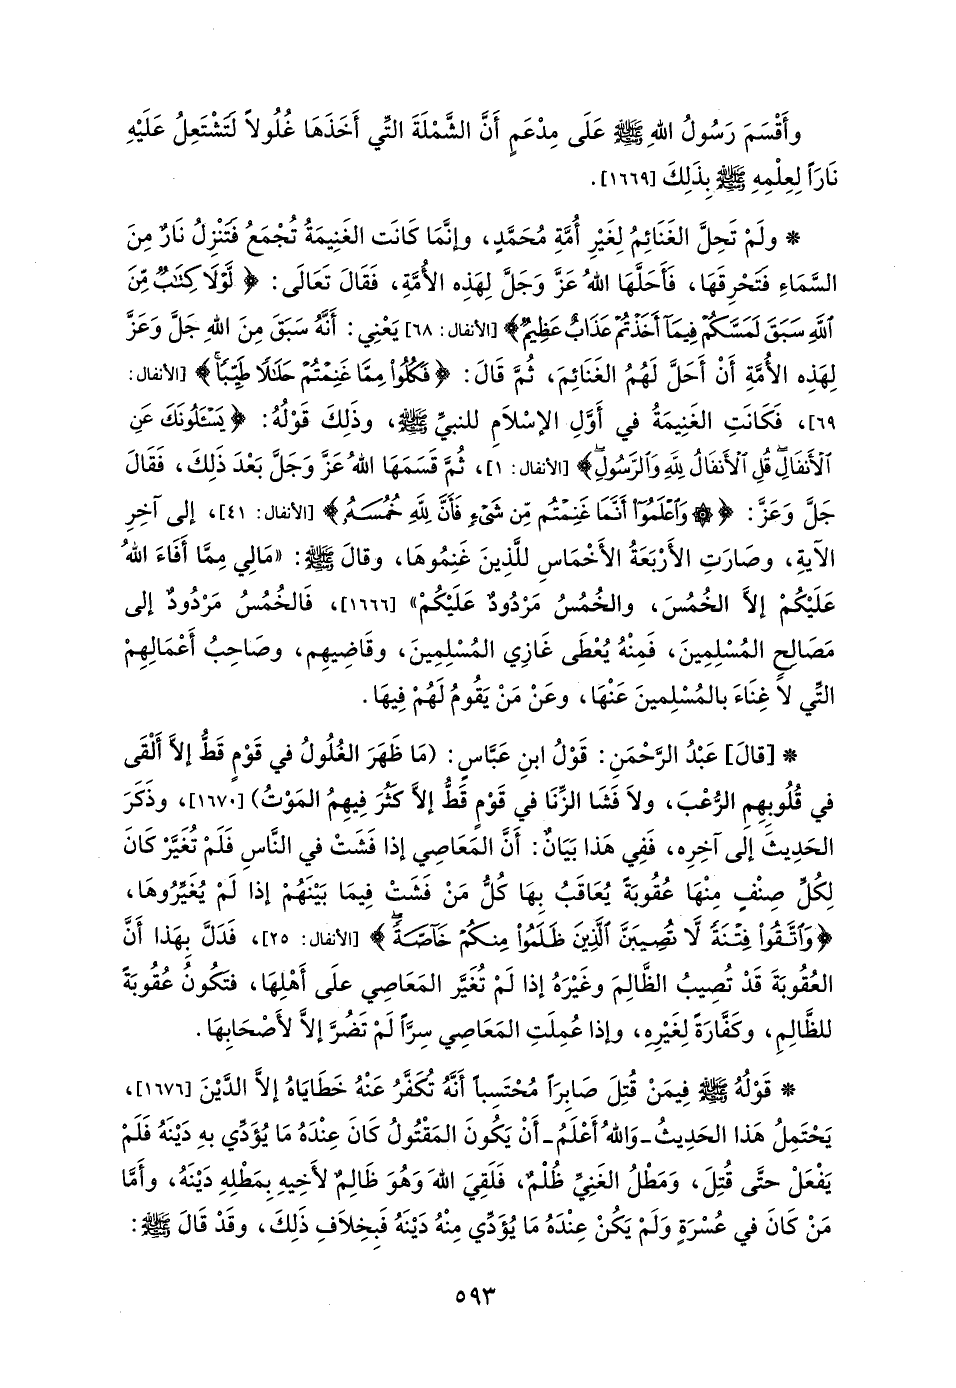 وأَقْسَمَ رَسُولُ اللهِ ﷺ عَلَى مِدْعَمٍ أَنَّ الشَّمْلَةَ التِّي أَخَذَهَا غُلُولاً لَتَشْتَعِلُ عَلَيْهِ
نَارَاً لِعِلْمِهِ ﷺ بِذَلِكَ [١٦٦٩].
* ولَمْ تَحِلَّ الغَنَائِمُ لِغَيْرِ أُمَّةِ مُحَمَّدٍ، وإنَّمَا كَانَت الغَنِيمَةُ تُجْمَعُ فَتَنْزِلُ نَارٌ مِنَ
السَّمَاءِ فَتَحْرِقَهَا، فَأَحَلَّهَا اللهُ عَزَّ وَجَلَّ لِهَذِه الأُمَّةِ، فَقَالَ تَعَالَى: ﴿ لَّوْلَا كِتَٰبٌ مِّنَ
ٱللَّهِ سَبَقَ لَمَسَّكُمْ فِيمَآ أَخَذْتُمْ عَذَابٌ عَظِيمٌ﴾ [الأنفال: ٦٨] يَعْنِي: أَنَّهُ سَبَقَ مِنَ اللهِ جَلَّ وَعَزَّ
لِهَذِه الأُمَّةِ أَنْ أَحَلَّ لَهُمُ الغَنَائِمَ، ثُمَّ قَالَ: ﴿ فَكُلُواْ مِمَّا غَنِمْتُمْ حَلَٰلًا طَيِّبًاۚ﴾ [الأنفال:
٦٩]، فَكَانَتِ الغَنِيمَةُ في أَوَّلِ الإسْلاَمِ للنبيِّ ﷺ، وذَلِكَ قَوْلُهُ: ﴿ يَسْـَٔلُونَكَ عَنِ
ٱلْأَنفَالِۖ قُلِ ٱلْأَنفَالُ لِلَّهِ وَٱلرَّسُولِۖ﴾ [الأنفال: ١]، ثُمَّ قَسَمَهَا اللهُ عَزَّ وَجَلَّ بَعْدَ ذَلِكَ، فَقَالَ
جَلَّ وَعَزَّ: ﴿ ۞ وَٱعْلَمُوٓاْ أَنَّمَا غَنِمْتُم مِّن شَىْءٍ فَأَنَّ لِلَّهِ خُمُسَهُۥ﴾ [الأنفال: ٤١]، إلى آخِرِ
الآيةِ، وصَارَتِ الأَرْبَعَةُ الأَخْمَاسِ للَّذِينَ غَنِمُوهَا، وقالَ ﷺ: «مَالِي مِمَّا أَفَاءَ اللهُ
عَلَيْكُمْ إلاَّ الخُمُسَ، والخُمُسُ مَرْدُودٌ عَلَيْكُمْ» [١٦٦٦]، فَالخُمُسُ مَرْدُودٌ إلى
مَصَالِحِ المُسْلِمِينَ، فَمِنْهُ يُعْطَى غَازِي المُسْلِمِينَ، وقَاضِيهِم، وصَاحِبُ أَعْمَالِهِمْ
التِّي لاَ غِنَاءَ بالمُسْلِمينَ عَنْهَا، وعَنْ مَنْ يَقُومُ لَهُمْ فِيهَا.
* [قالَ] عَبْدُ الرَّحْمَنِ: قَوْلُ ابنِ عَبَّاسٍ: (مَا ظَهَرَ الغُلُولُ في قَوْمٍ قَطُّ إلاَّ أَلْقَى
في قُلُوبِهِم الرُّعْبَ، ولاَ فَشَا الزِّنَا في قَوْمٍ قَطُّ إلاَّ كَثُرَ فِيهِمُ المَوْتُ) [١٦٧٠]، وذَكَرَ
الحَدِيثَ إلى آخِرِه، فَفِي هَذَا بَيَانٌ: أَنَّ المَعَاصِي إذا فَشَتْ في النَّاسِ فَلَمْ تُغَيَّرْ كَانَ
لِكُلِّ صِنْفٍ مِنْهَا عُقُوبَةً يُعَاقَبُ بِهَا كُلُّ مَنْ فَشَتْ فِيمَا بَيْنَهُمْ إذا لَمْ يُغَيِّرُوهَا،
﴿وَٱتَّقُواْ فِتْنَةً لَّا تُصِيبَنَّ ٱلَّذِينَ ظَلَمُواْ مِنكُمْ خَآصَّةًۖ ﴾ [الأنفال: ٢٥]، فَدَلَّ بِهَذا أَنَّ
العُقُوبَةَ قَدْ تُصِيبُ الظَّالِمَ وغَيْرَهُ إذا لَمْ تُغَيَّر المَعَاصِي علَى أَهْلِهَا، فتَكُونُ عُقُوبَةً
للظَّالِمِ، وكَفَّارَةً لِغَيْرِهِ، وإذا عُمِلَتِ المَعَاصِي سِرَّاً لَمْ تَضُرَّ إلاَّ لأَصْحَابِهَا.
* قَوْلُهُ ﷺ فِيمَنْ قُتِلَ صَابِرَاً مُحْتَسِباً أَنَّهُ تُكَفَّرُ عَنْهُ خَطَايَاهُ إلاَّ الدَّيْنَ [١٦٧٦]،
يَحْتَمِلُ هَذا الحَدِيثُ ـ وَاللهُ أَعْلَمُ ـ أَنْ يَكُونَ المَقْتُولُ كَانَ عِنْدَهُ مَا يُؤَدِّي بهِ دَيْنَهُ فَلَمْ
يَفْعَلْ حتَّى قُتِلَ، وَمَطْلُ الغَنِيِّ ظُلْمٌ، فَلَقِيَ اللهَ وَهُوَ ظَالِمٌ لأَخِيهِ بِمَطْلِهِ دَيْنَهُ، وأَمَّا
مَنْ كَانَ في عُسْرَةٍ وَلَمْ يَكُنْ عِنْدَهُ مَا يُؤَدِّي مِنْهُ دَيْنَهُ فَبِخِلاَفِ ذَلِكَ، وقَدْ قَالَ ﷺ:
٥٩٣